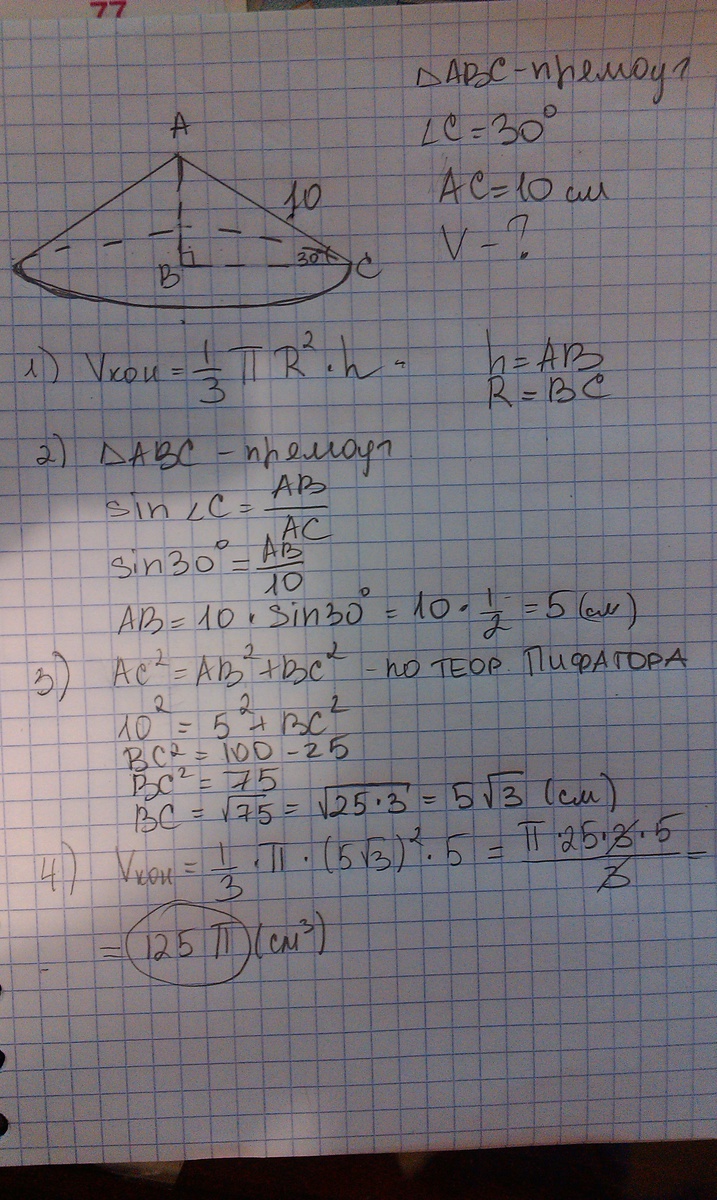 77
△ABC - премоуг
∠C = 30°
AC = 10 см
V - ?
A
10
B
30°
C
1) Vкон = 1/3 π R² · h -
h = AB
R = BC
2) △ABC - премоуг
sin ∠C = AB/AC
sin 30° = AB/10
AB = 10 · sin 30° = 10 · 1/2 = 5 (см)
3) AC² = AB² + BC² - ПО ТЕОР. ПИФАГОРА
10² = 5² + BC²
BC² = 100 - 25
BC² = 75
BC = √75 = √25·3 = 5√3 (см)
4) Vкон = 1/3 · π · (5√3)² · 5 = π·25·3·5/3 =
= 125 π (см³)